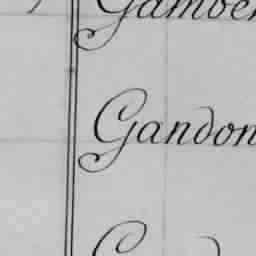 Gamber
Gandon